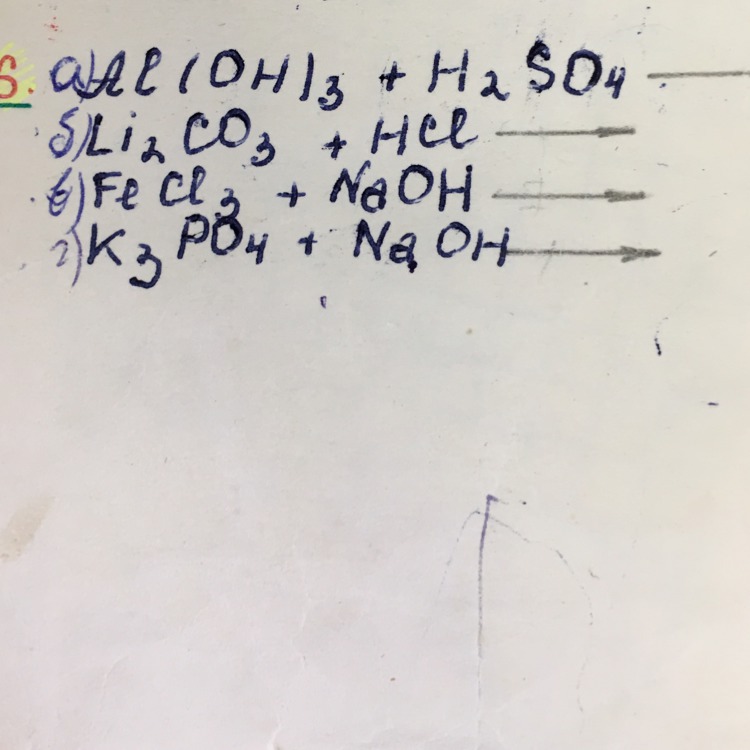 6. а) Al(OH)3 + H2SO4 —
б) Li2CO3 + HCl →
в) FeCl3 + NaOH →
г) K3PO4 + NaOH →